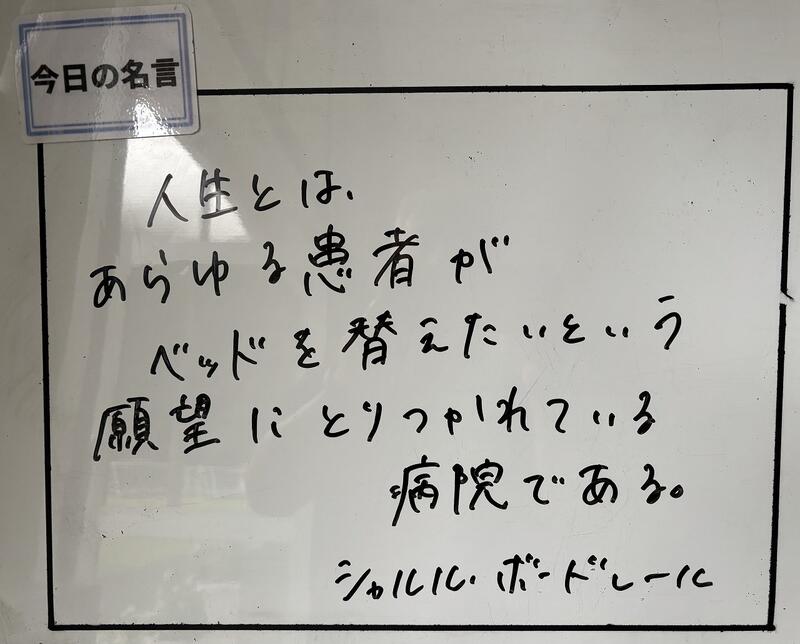 今日の名言
人生とは、
あらゆる患者が
ベッドを替えたいという
願望にとりつかれている
病院である。
シャルル・ボードレール